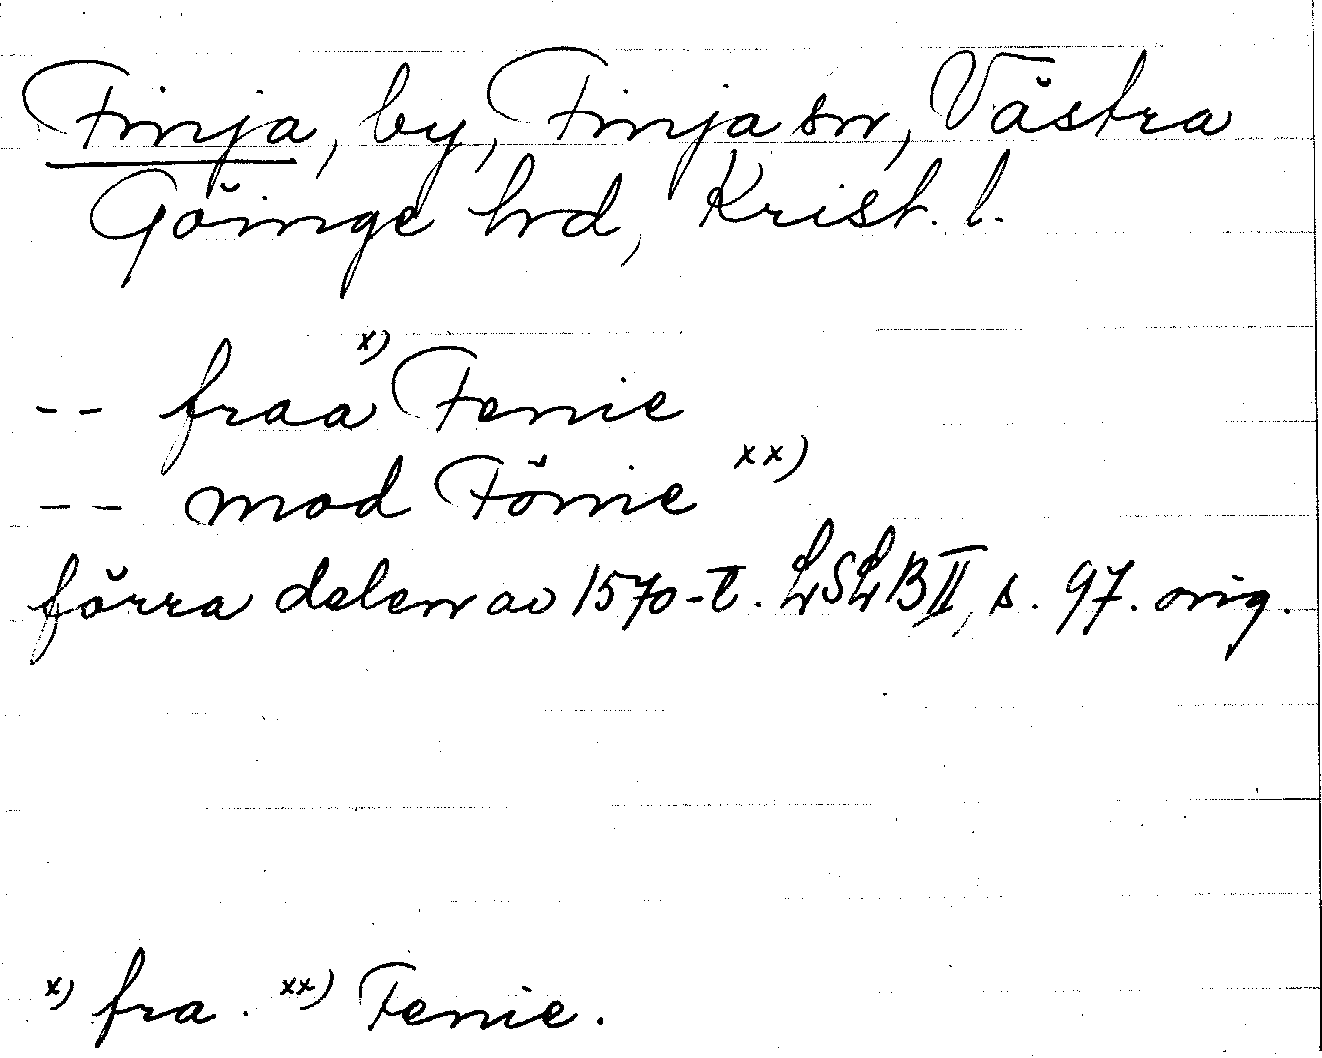 Finja, by, Finja sn, Västra
Göinge hrd, Krist. l.
-- fraa x) Fenie
-- mod Fönie xx)
förra delen av 1570-t. LSLB II, s. 97. orig.
x) fra. xx) Fenie.